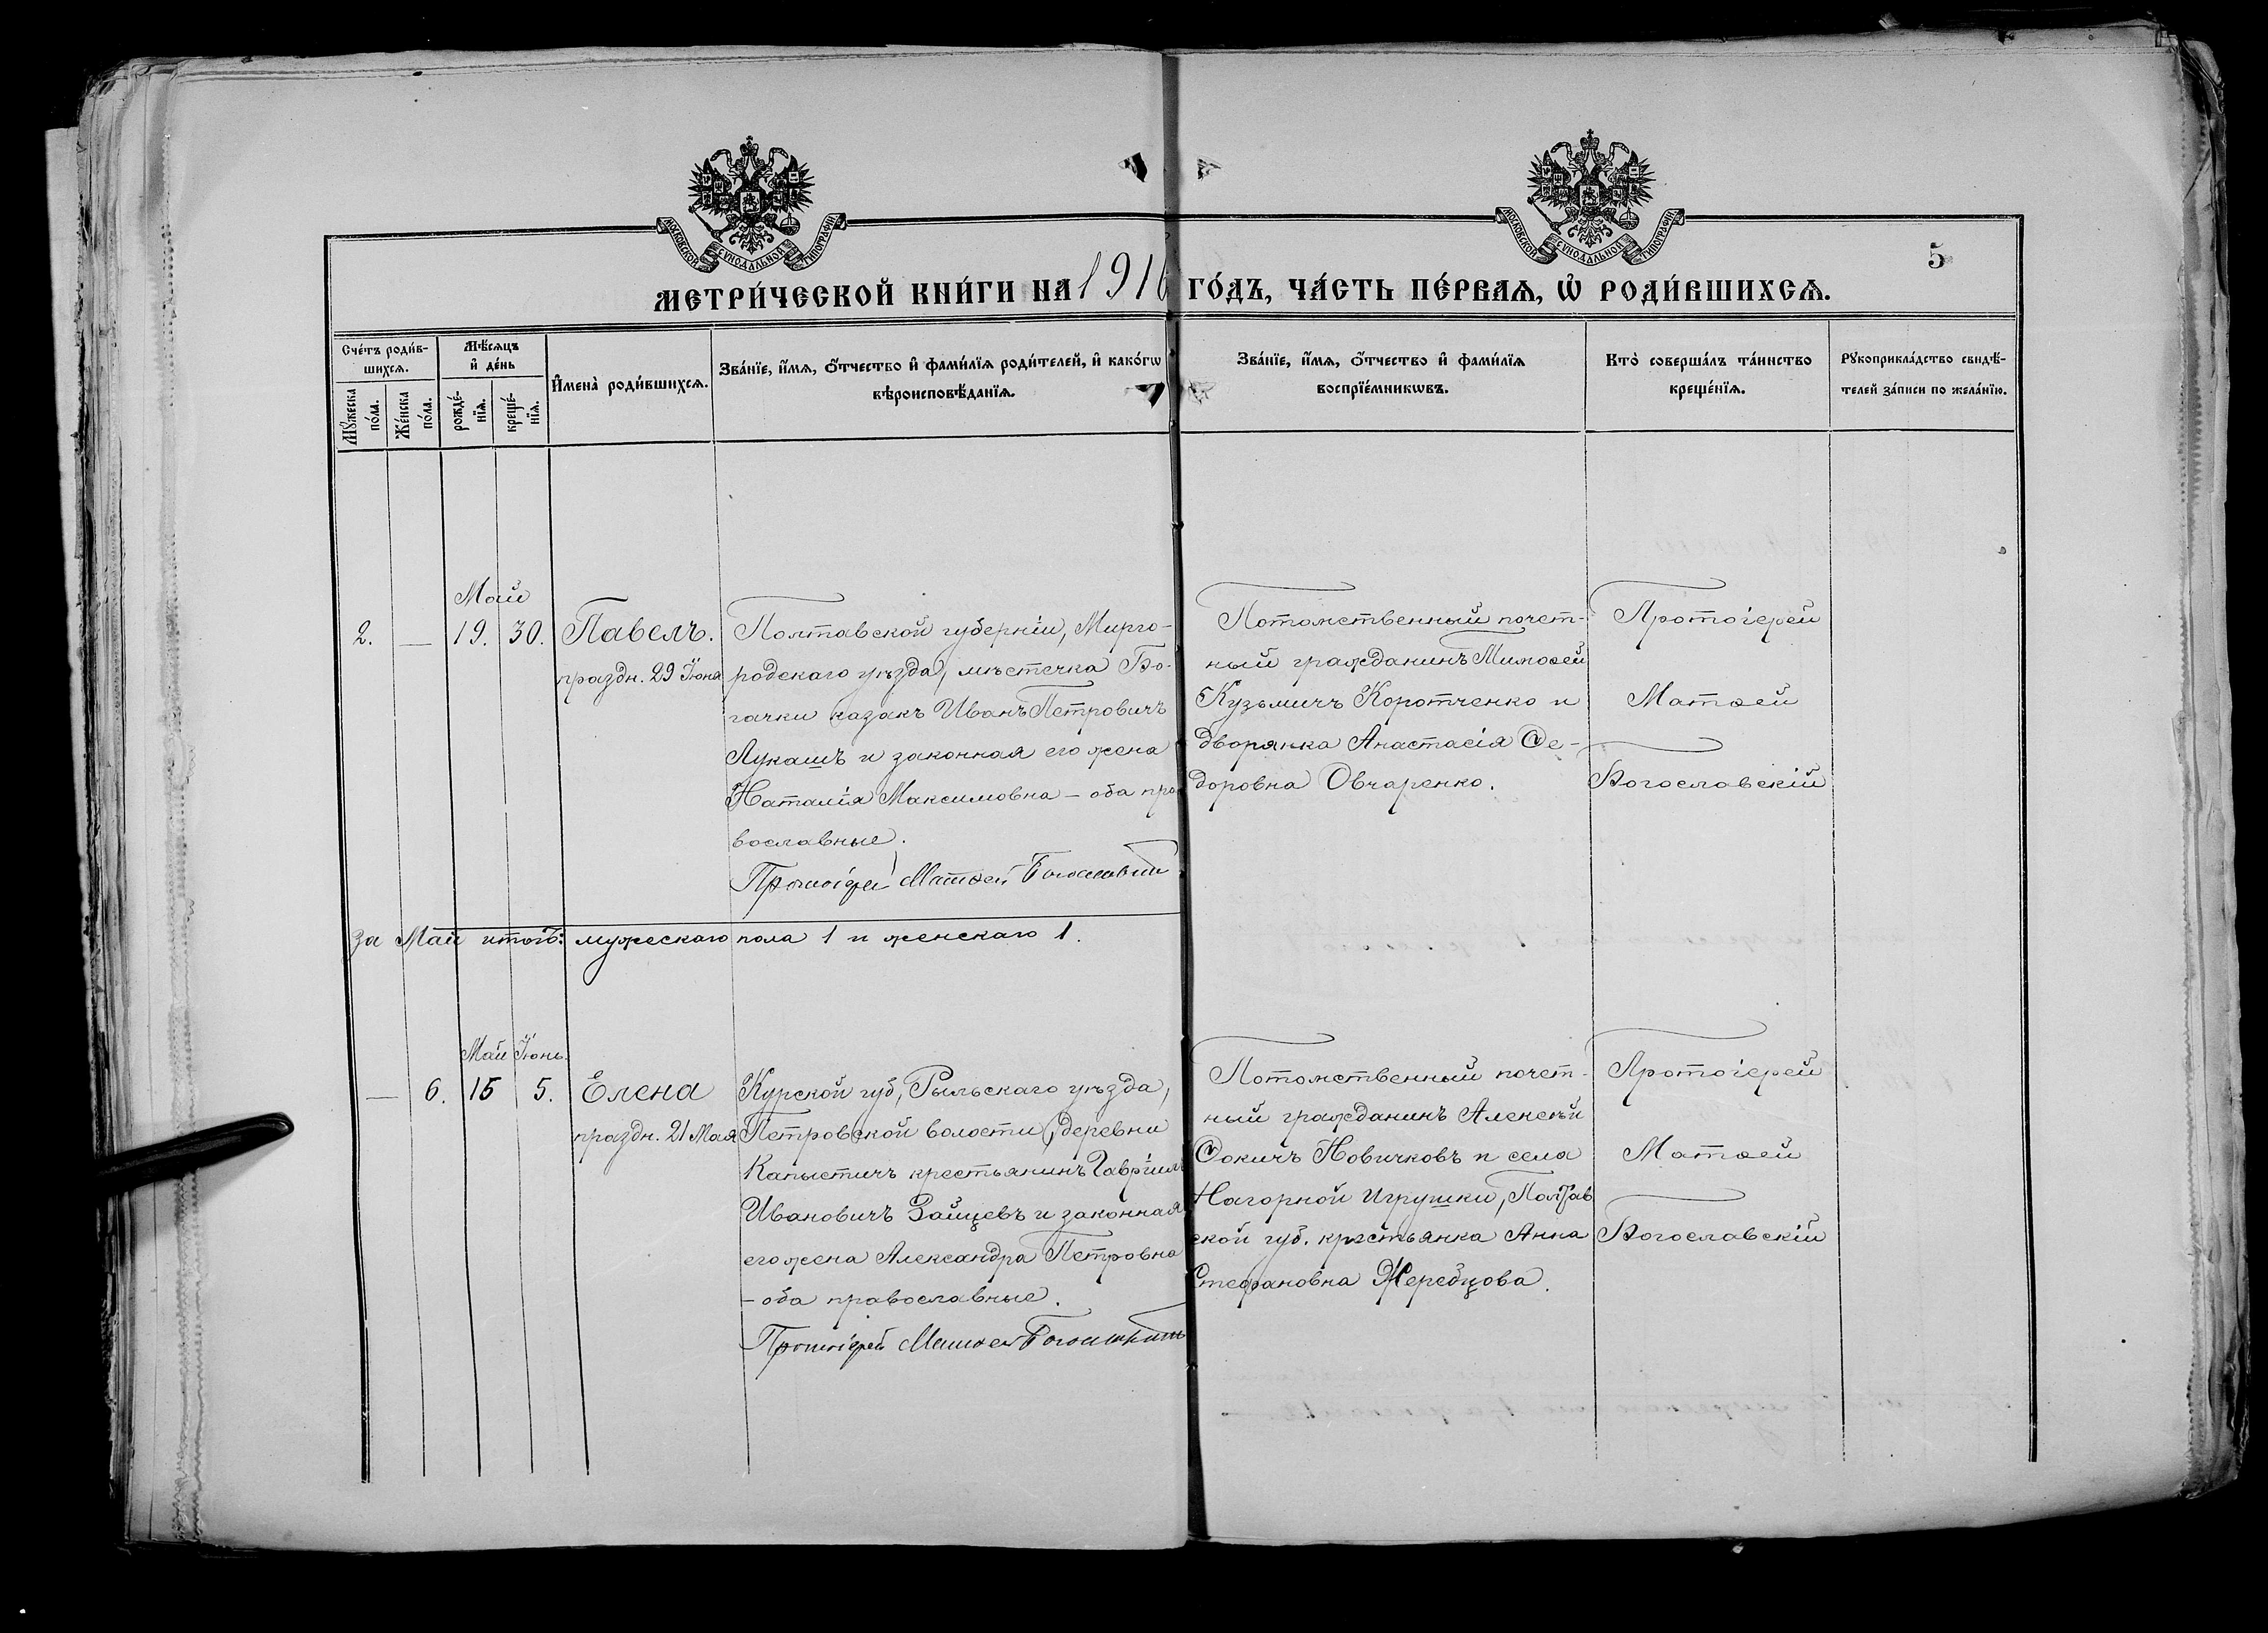 МОСКОВСКОЙ СУНОДАЛЬНОЙ ТИПОГРАФІИ
МОСКОВСКОЙ СУНОДАЛЬНОЙ ТИПОГРАФІИ
5
МЕТРИ́ЧЕСКОЙ КНИ́ГИ НА 1916 ГО́ДЪ, ЧА́СТЬ ПЕ́РВАѦ, Ѡ҆ РОДИ́ВШИХСѦ.
Сче́тъ роди́в-
шихсѧ.
Мꙋ́жеска
по́ла.
Же́нска
по́ла.
Мѣ́сѧцъ
и҆ де́нь
рожде́-
нїѧ.
креще́-
нїѧ.
И҆мена̀ роди́вшихсѧ.
Зва́нїе, и҆́мѧ, ѻ҆́тчество и҆ фами́лїѧ роди́телей, и҆ како́гѡ
вѣроисповѣ́данїѧ.
Зва́нїе, и҆́мѧ, ѻ҆́тчество и҆ фами́лїѧ
воспрїе́мникѡвъ.
Кто̀ соверша́лъ та́инство
креще́нїѧ.
Рꙋкоприкла́дство свидѣ́-
телей за́писи по жела́нїю.
Май
2. — 19. 30. Павелъ.
праздн. 29 Іюня
Полтавской губерніи, Мирго-
родскаго уѣзда, мѣстечка Бо-
гачки казакъ Иванъ Петровичъ
Лукашъ и законная его жена
Наталія Максимовна – оба пра
вославные.
Протоіерей Матѳей Богословскій
Потомственный почет-
ный гражданинъ Тимоѳей
Кузьмичъ Коротченко и
дворянка Анастасія Ѳе-
доровна Овчаренко.
Протоіерей
Матѳей
Богословскій
За Май итогъ: мужескаго пола 1 и женскаго 1.
Май Іюнь.
— 6. 15 5. Елена
праздн. 21 Мая
Курской губ, Рыльскаго уѣзда,
Петровской волости, деревни
Капыстичъ крестьянинъ Гавріилъ
Ивановичъ Зайцевъ и законная
его жена Александра Петровна
– оба православные.
Протоіерей Матѳей Богословскій
Потомственный почет-
ный гражданинъ Алексѣй
Ѳокичъ Новичковъ и села
Нагорной Игрушки, Полтав
ской губ. крестьянка Анна
Стефановна Жеребцова.
Протоіерей
Матѳей
Богословскій